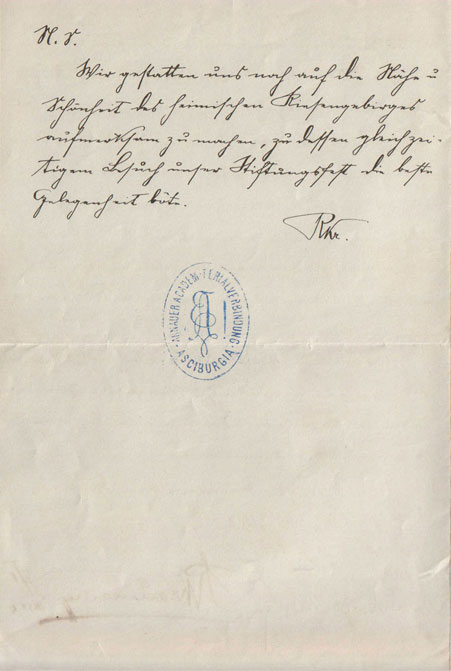 N. S.
Wir gestatten uns noch auf die Nähe u
Schönheit des heimischen Riesengebirges
aufmerksam zu machen, zu dessen gleichzei-
tigem Besuch unser Stiftungsfest die beste
Gelegenheit böte.
Rkr.
ARNAUER ACADEM. FERIALVERBINDUNG
ASCIBURGIA